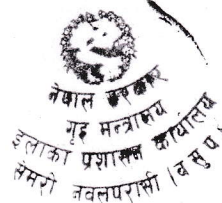 नेपाल सरकार
गृह मन्त्रालय
इलाका प्रशासन कार्यालय
सेमरी नवलपरासी (ब.सु.प.